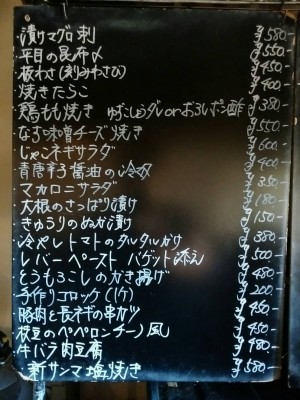 漬けマグロ刺 ¥580-
平目の昆布〆 ¥550-
板わさ(刻みわさび) ¥450-
焼きたらこ ¥400-
鶏もも焼き ゆずこしょうダレorおろしポン酢 ¥380-
なす味噌チーズ焼き ¥550-
じゃこネギサラダ ¥600-
青唐辛子醤油の冷奴 ¥400-
マカロニサラダ ¥350-
大根のさっぱり漬け ¥180-
きゅうりのぬか漬け ¥150-
冷やしトマトのタルタルがけ ¥380-
レバーペースト バゲット添え ¥500-
とうもろこしのかき揚げ ¥480-
手作りコロッケ(1ケ) ¥200-
豚肉と長ネギの串カツ ¥450-
枝豆のペペロンチーノ風 ¥450-
牛バラ肉豆腐 ¥480-
新サンマ塩焼き ¥580-